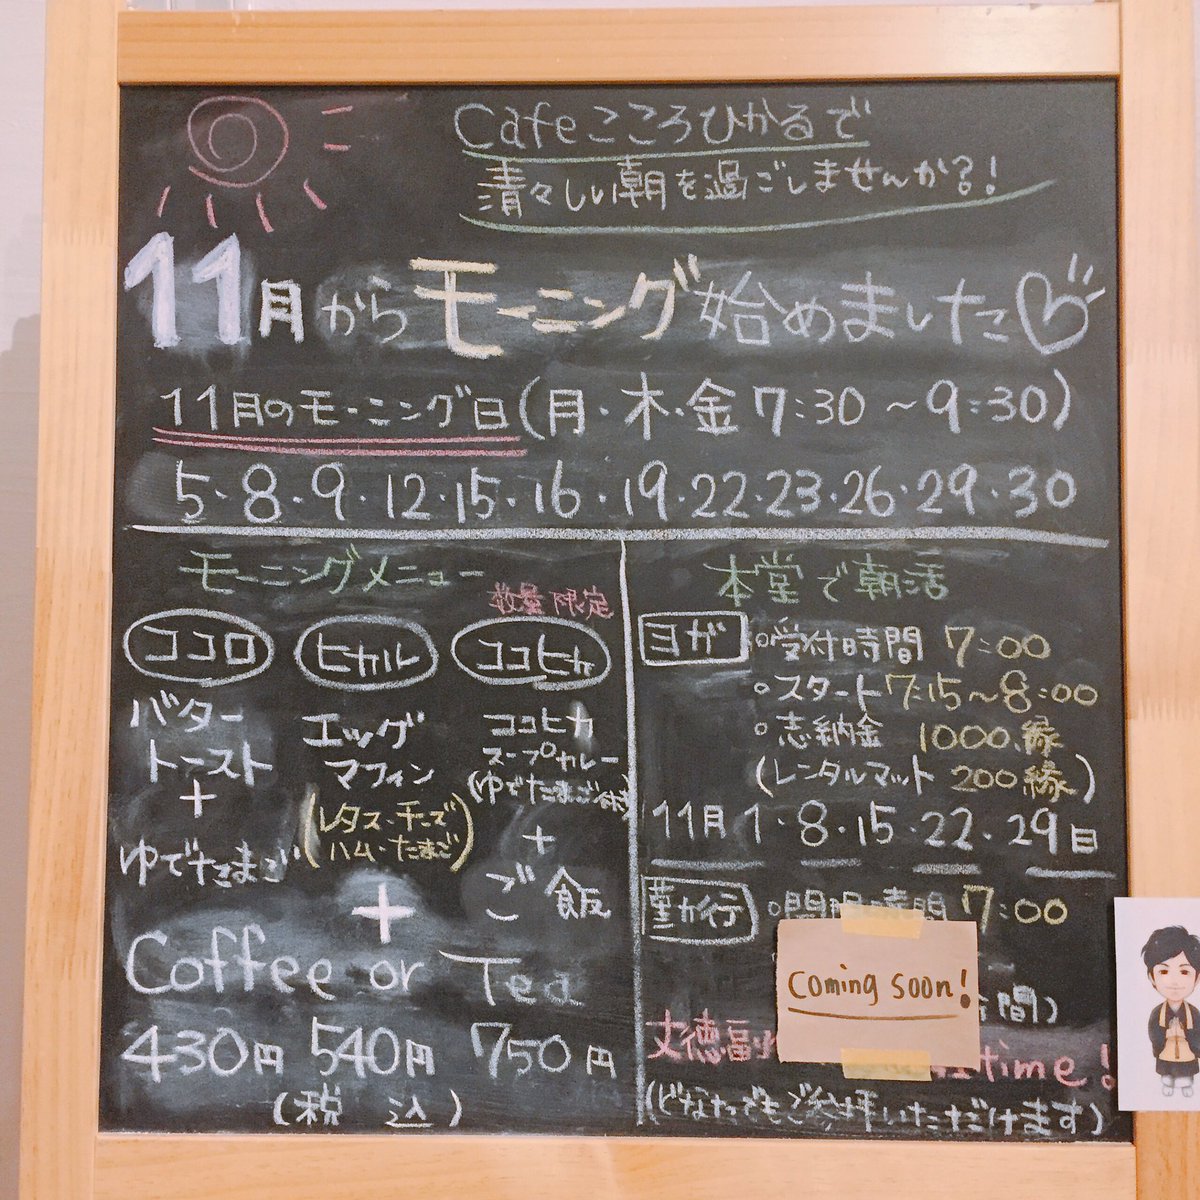 Cafeこころひかるで
清々しい朝を過ごしませんか?!
11月からモーニング始めました
11月のモーニング日(月・木・金 7:30～9:30)
5・8・9・12・15・16・19・22・23・26・29・30
モーニングメニュー
数量限定
ココロ
バター
トースト
+
ゆでたまご
ヒカル
エッグ
マフィン
(レタス・チーズ
ハム・たまご)
ココヒカ
ココヒカ
スープカレー
(ゆでたまご付き)
+
ご飯
+
Coffee or Tea
430円 540円 750円
(税込)
本堂で朝活
ヨガ
。受付時間 7:00
。スタート 7:15～8:00
。志納金 1000縁
(レンタルマット 200縁)
11月 1・8・15・22・29日
7:00
Coming soon!
間)
time!
(どなたでもご参拝いただけます)